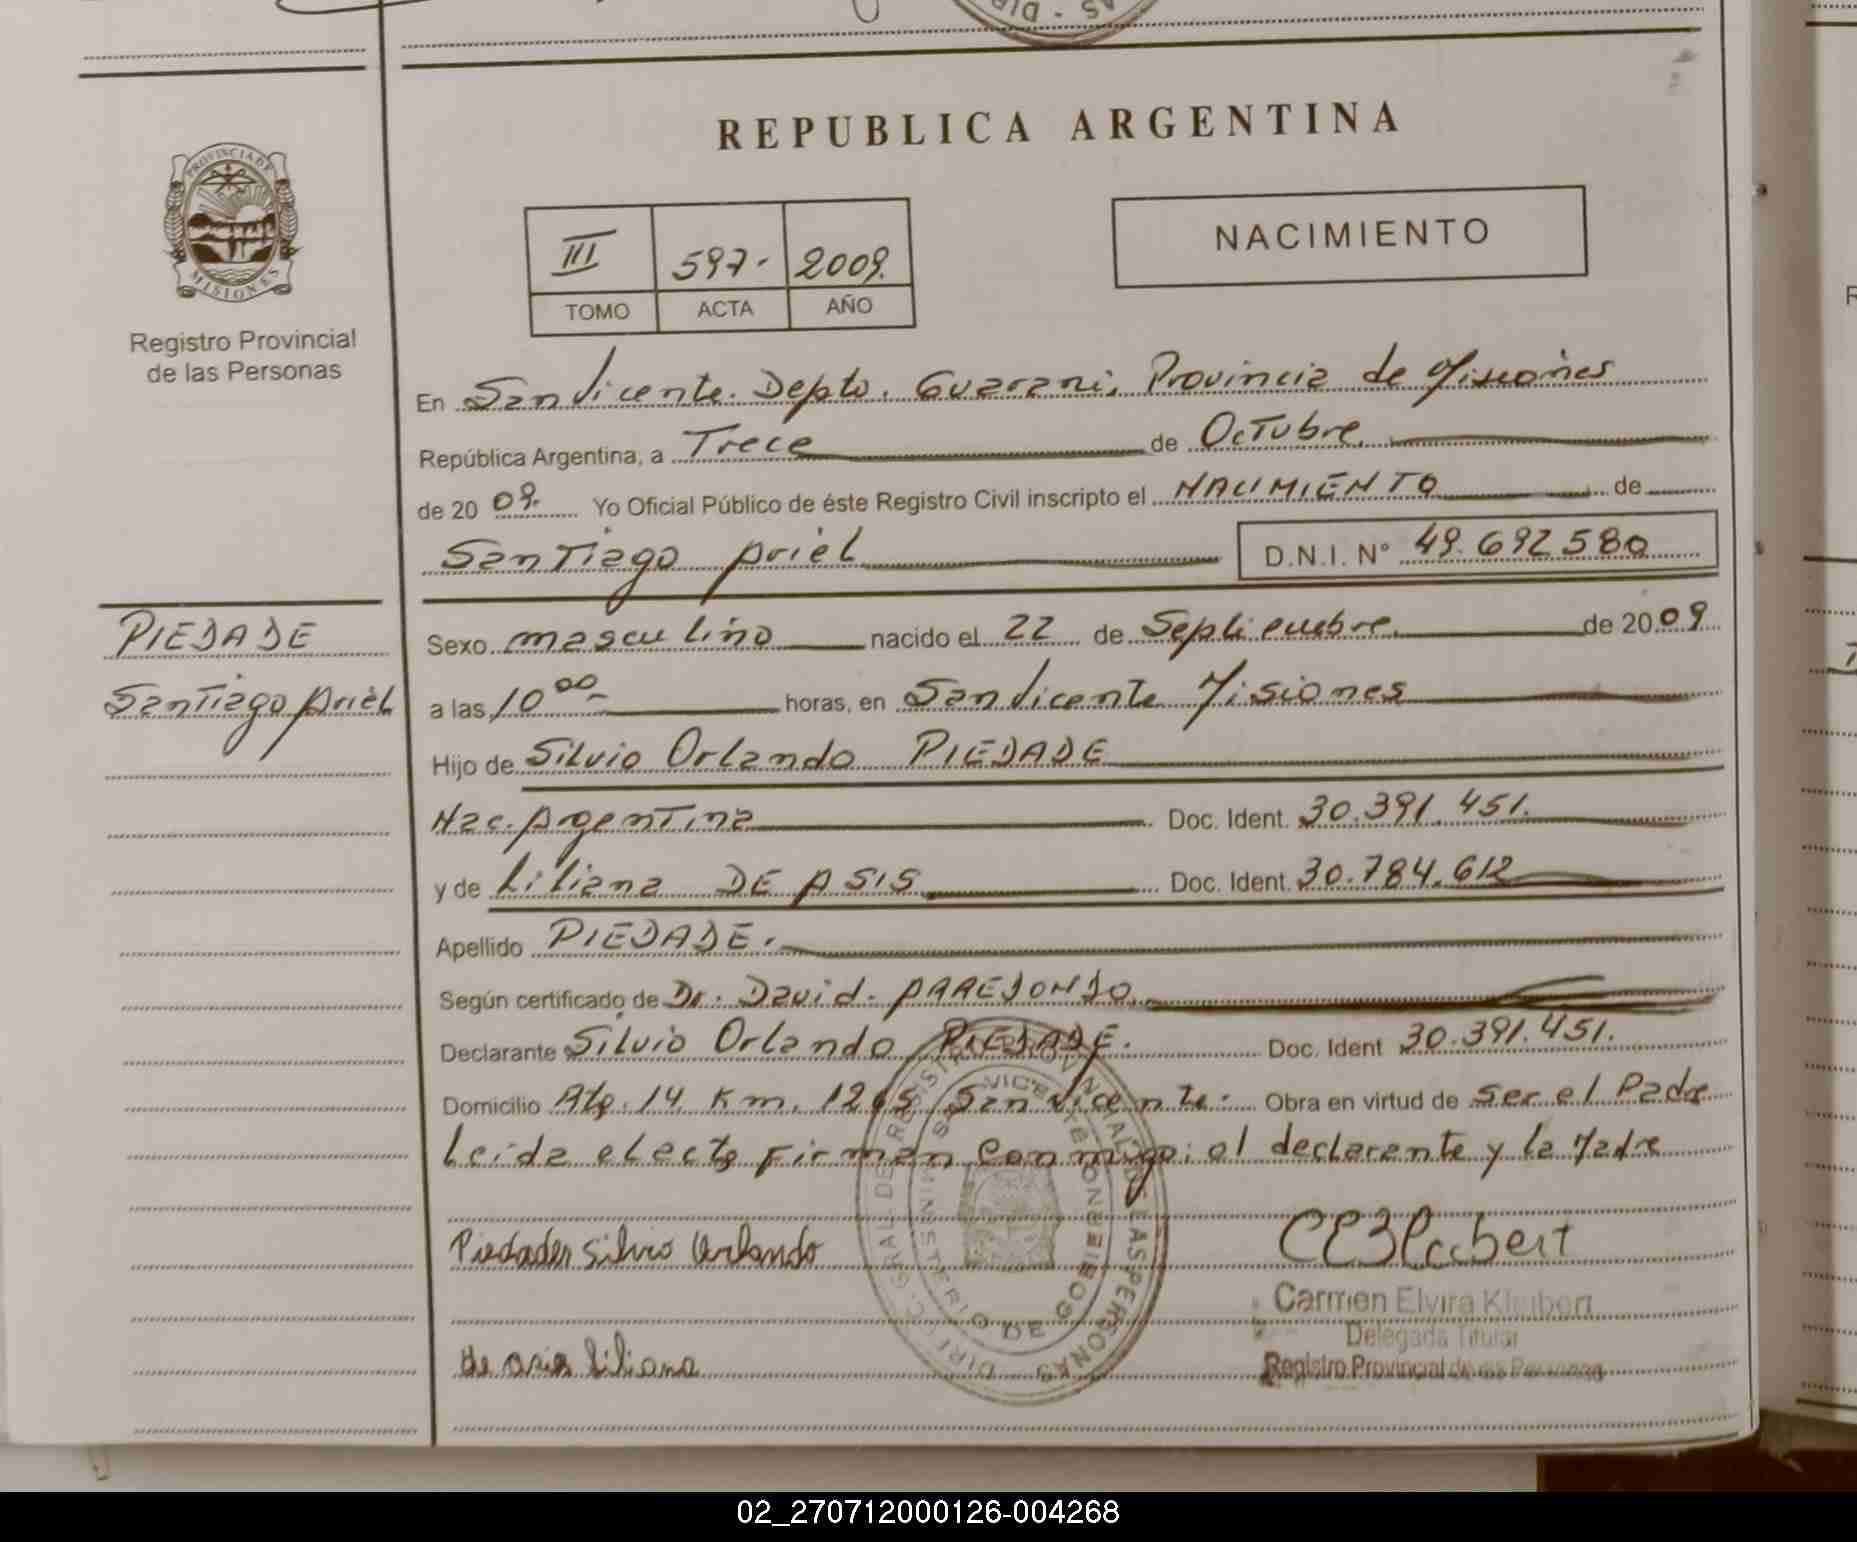 REPUBLICA ARGENTINA
PROVINCIA DE
MISIONES
Registro Provincial
de las Personas
III 597- 2009.
TOMO ACTA AÑO
NACIMIENTO
En San Vicente. Depto. Guarani, Provincia de Misiones
República Argentina, a Trece de Octubre
de 2009. Yo Oficial Público de éste Registro Civil inscripto el NACIMIENTO de
Santiago Ariel D.N.I. N° 49.692580
PIEDADE
Santiago Ariel
Sexo masculino nacido el 22 de Septiembre de 2009
a las 10 00 horas, en San Vicente Misiones
Hijo de Silvio Orlando PIEDADE
Nac. Argentina Doc. Ident. 30.391.451.
y de Liliana DE ASIS Doc. Ident. 30.784.612
Apellido PIEDADE.
Según certificado de Dr. David. PAREDONDO
Declarante Silvio Orlando PIEDADE. Doc. Ident 30.391.451.
Domicilio 14 Km. 1265 San Vicente. Obra en virtud de ser el Padre
Leida el acta Firman conmigo: el declarante y la Madre
Piedades Silvio Orlando
de asis Liliana
Carmen Elvira Klubert
Delegada Titular
Registro Provincial de las Personas
SAN VICENTE
MINISTERIO DE GOBIERNO
02_270712000126-004268